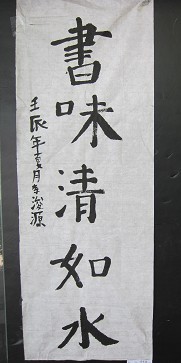 書味清如水
壬辰年夏月李浚源